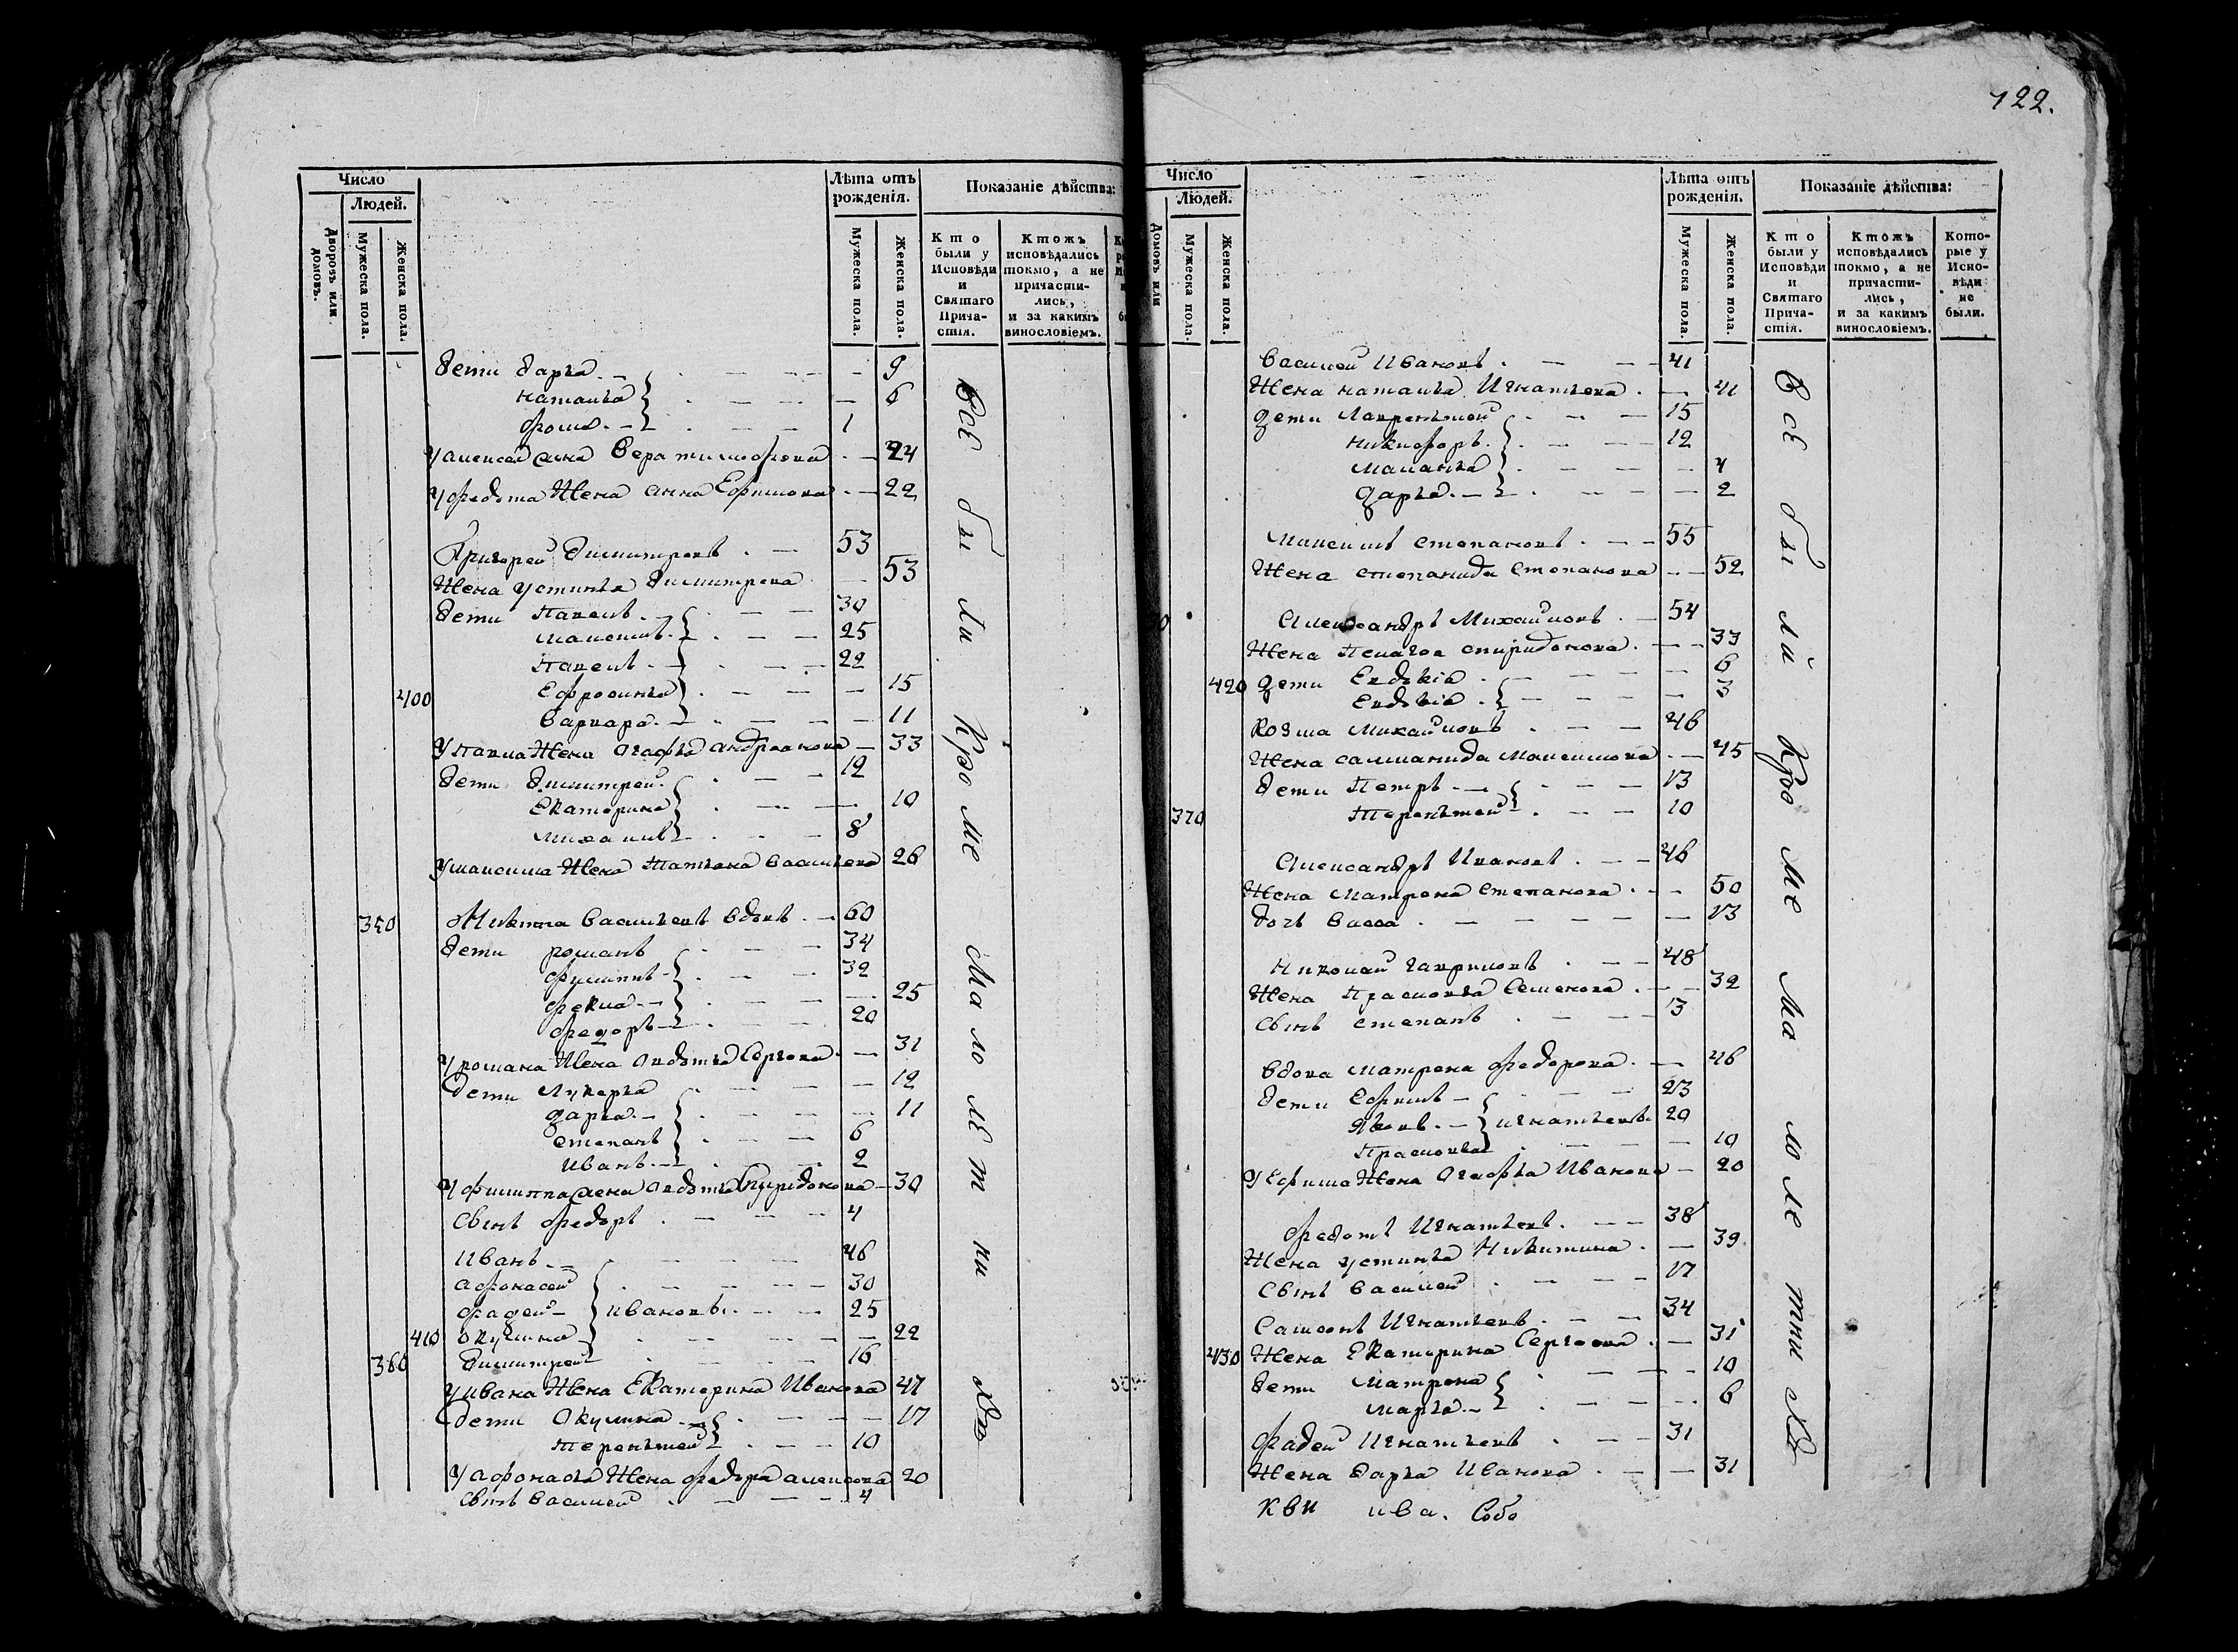 Число
Людей.
Дворовъ или домовъ.
Мужеска пола.
Женска пола.
Лѣта отъ рожденія.
Мужеска пола.
Женска пола.
Показаніе дѣйства:
Кто были у Исповѣди и Святаго Прича-стія.
Ктожъ исповѣдались токмо, а не причасти-лись, и за какимъ винословіемъ.
дети дарья — 9
наталья — 6
фома 1
у алексея жена Вера тимофеева — 24
у федота Жена анна Ефимова — 22
Григорей димитреевъ 53
Жена устинья димитрева — 53
дети Павелъ 30
максимъ 25
Павелъ 22
400 Ефросинья — 15
варвара — 11
у павла Жена агафья андреанова — 33
дети димитрей 12
Екатерина — 10
михаилъ 8
у максима Жена Татьяна васильева 26
350 Никита васильевъ вдовъ 60
дети романъ 34
филиппъ 32
фекла — 25
федоръ 20
у романа Жена авдотья Сергеева — 31
дети лукерья — 12
дарья — 11
степанъ 6
иванъ 2
у филиппа жена авдотья спиридонова — 30
сынъ федоръ 4
иванъ 46
афонасей 30
фадей ивановы 25
410 окулина — 22
360 димитрей 16
у ивана Жена Екатерина Иванова 47
дети окулина — 17
терентей 10
у афонасья Жена федора алексеева 20
сынъ василей 4
всѣ были Кроме малолѣтнихъ
122.
Число
Людей.
Домовъ или
Мужеска пола.
Женска пола.
Лѣта отъ рожденія.
Мужеска пола.
Женска пола.
Показаніе дѣйства:
Кто были у Исповѣди и Святаго Прича-стія.
Ктожъ исповѣдались токмо, а не причасти-лись, и за какимъ винословіемъ.
Кото-рые у Испо-вѣди не были.
василей Ивановъ 41
Жена наталья Игнатьева — 41
дети лаврентей 15
никифоръ 12
маланья — 4
дарья — 2
максимъ степановъ 55
Жена степанида степанова — 52
александръ михайловъ 54
Жена Пелагея спиридонова — 33
420 дети Евдокіа — 6
Евдокіа — 3
козма михайловъ 46
Жена саламанида максимова — 45
дети Петръ 13
370 Терентей 10
александръ Ивановъ 46
Жена матрена степанова — 50
дочь васса — 13
николай гавриловъ 48
Жена Прасковья Семенова — 32
сынъ степанъ 13
вдова матрена федорова — 46
дети Ефимъ 23
яковъ игнатьевы 20
Прасковья — 10
у Ефима Жена агафья Иванова — 20
федотъ Игнатьевъ 38
Жена устинья Никитина — 39
сынъ василей 17
самсонъ Игнатьевъ 34
430 Жена Екатерина Сергеева — 31
дети матрена — 10
марья — 6
фадей Игнатьевъ 31
Жена дарья Иванова — 31
всѣ были Кроме малолетних
кви ива. Собо